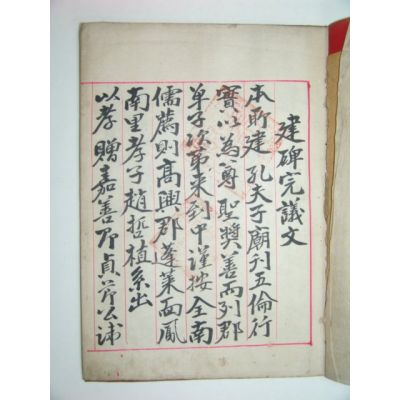 建碑完議文
本所建 孔夫子廟刊五倫行
實以為尊 聖獎善而列郡
單子次第来到中謹按全南
儒薦則高興郡蓬萊面鳳
南里孝子趙哲植系出
以孝贈嘉善即貞節公